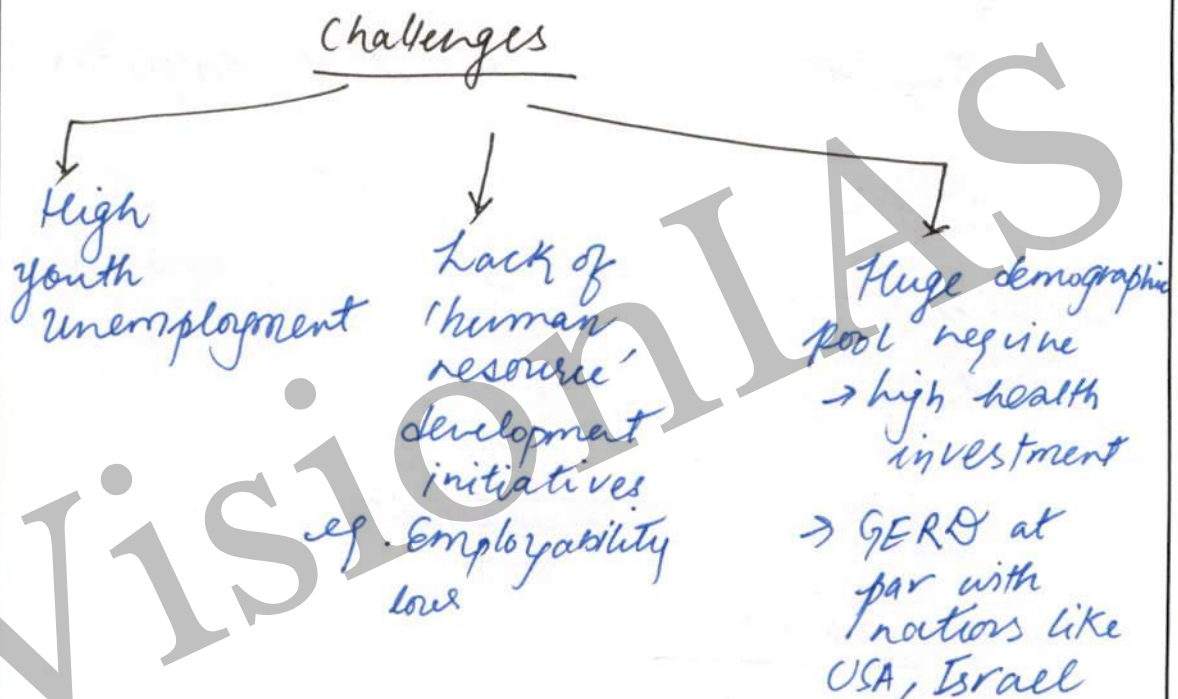 Challenges
High
youth
unemployment
Lack of
'human
resource'
development
initiatives
eg. Employability
low
Huge demographic
pool require
→ high health
investment
→ GERD at
par with
nations like
USA, Israel
VisionIAS